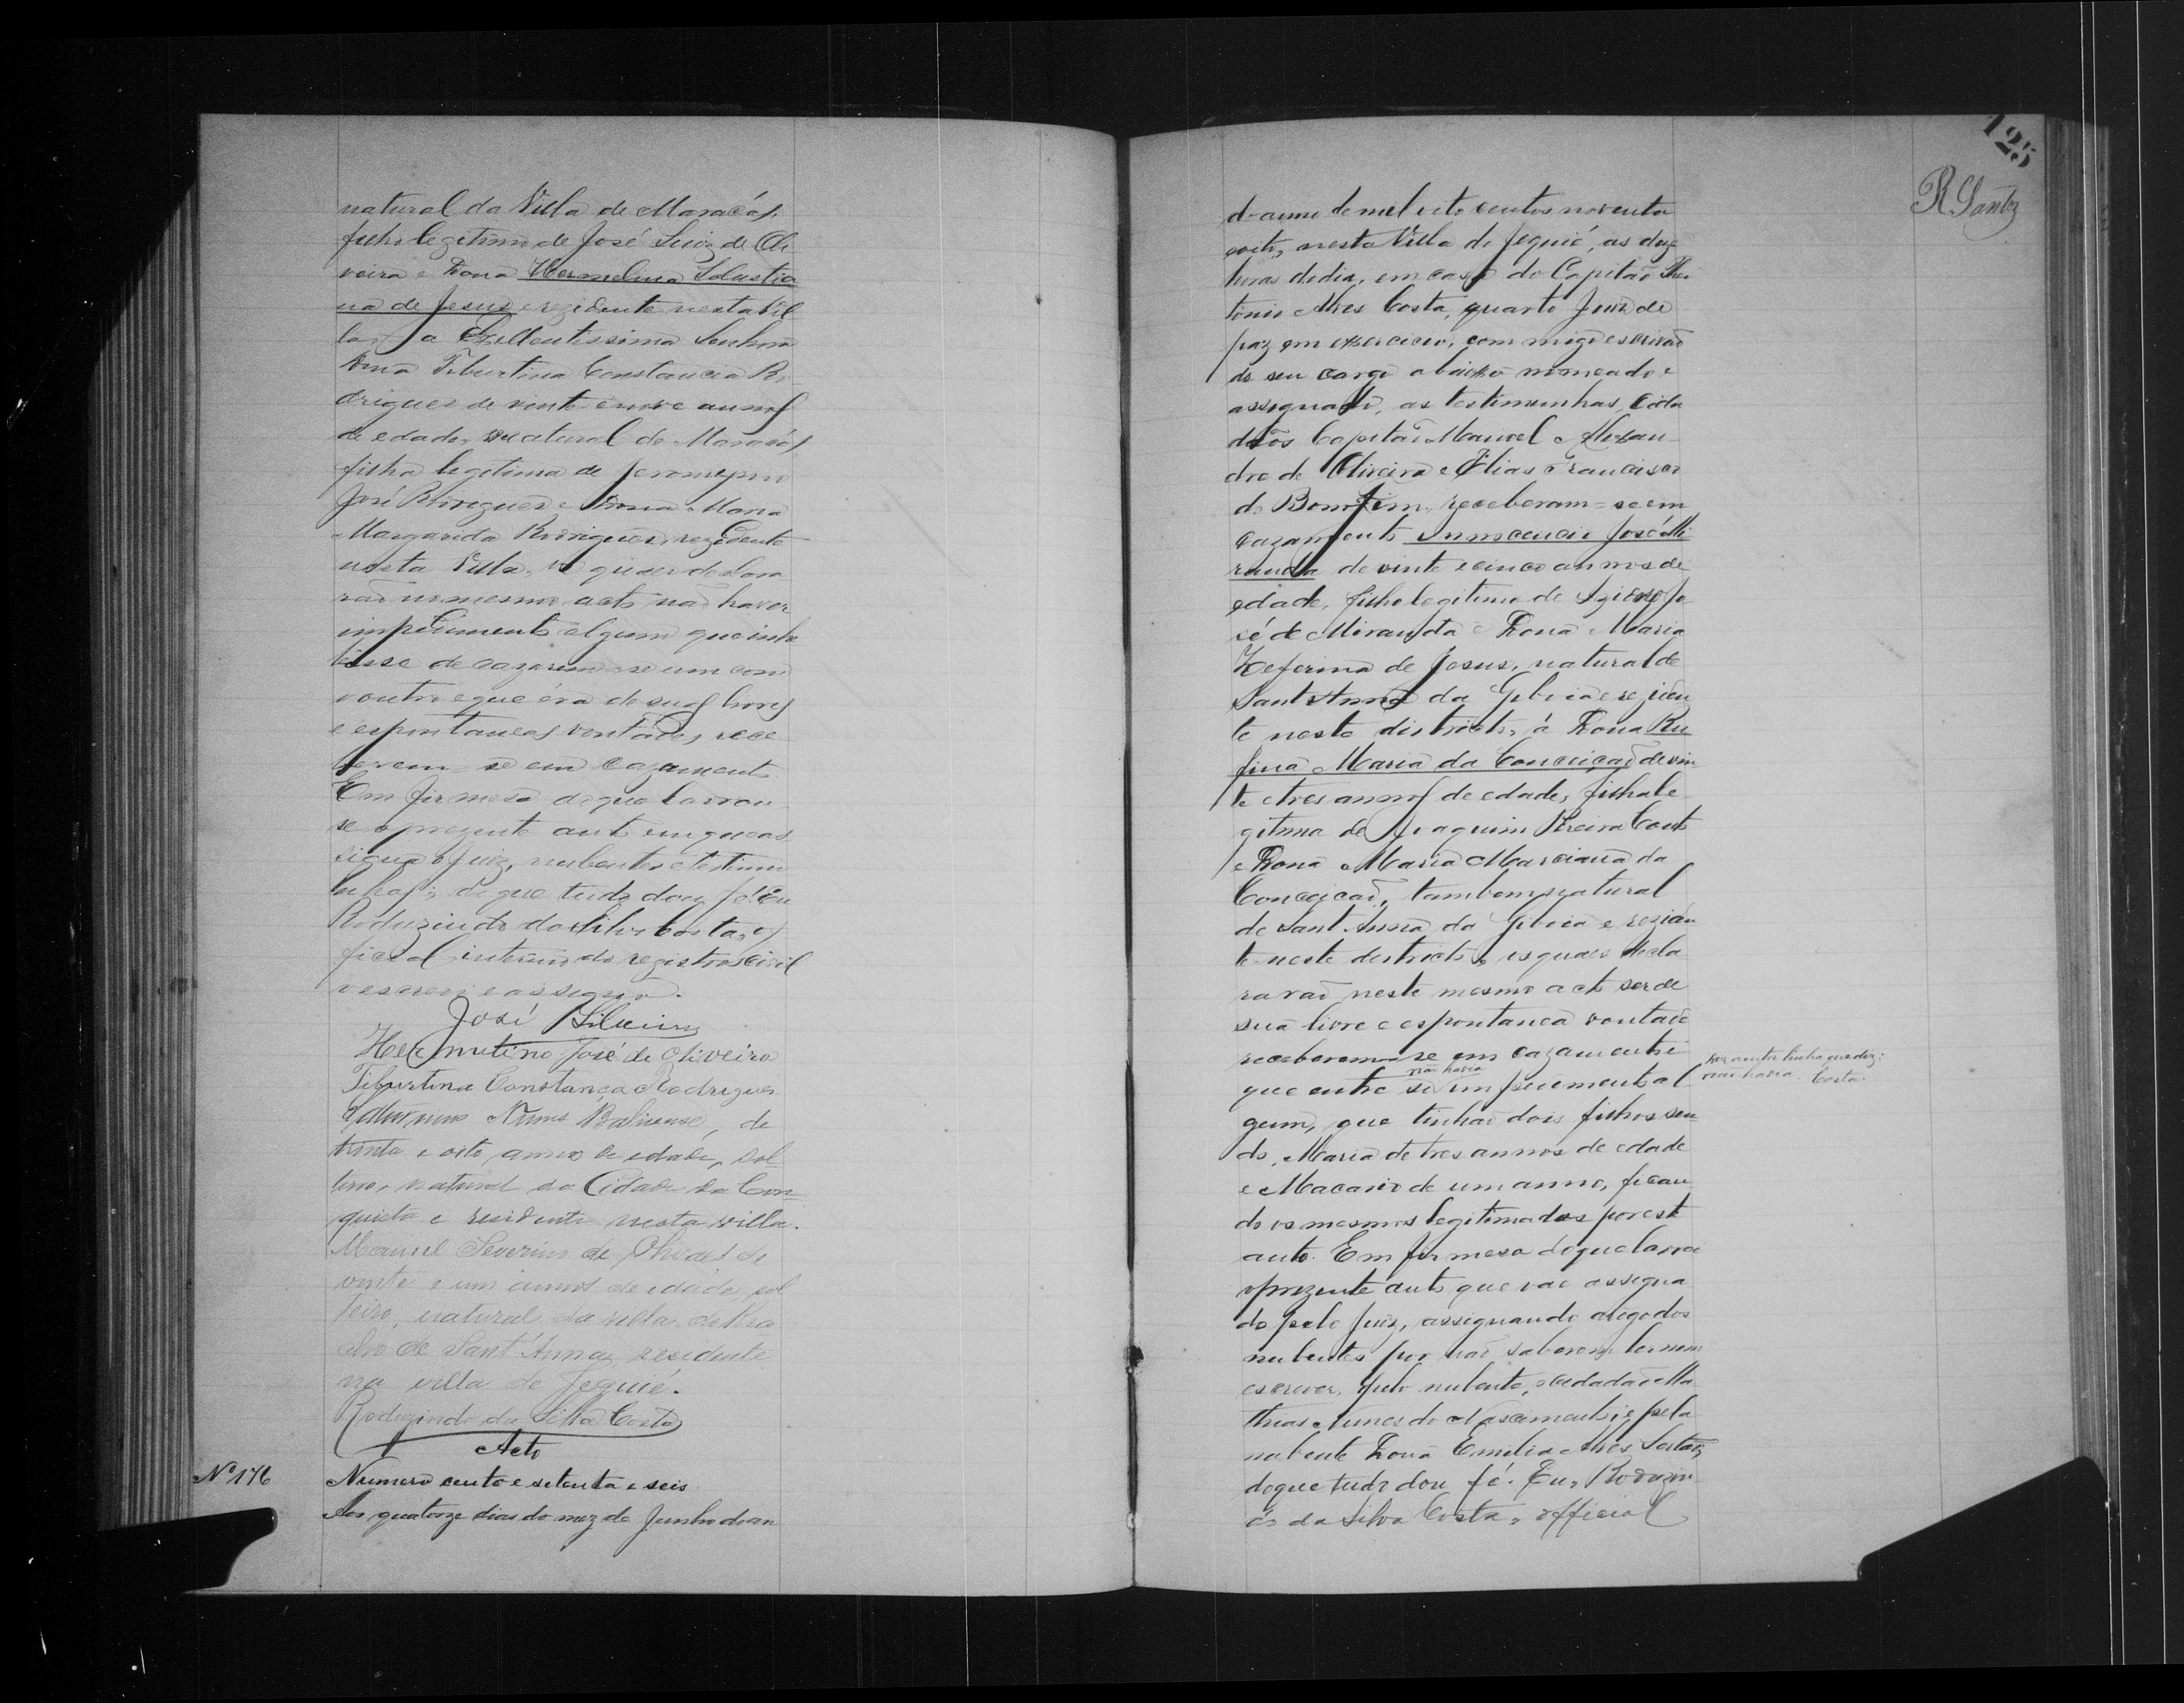 natural da Villa de Maracás,
filho legitimo de José Luiz de Oli
veira e Dona Hermelina Salustia
na de Jesus e rezidente nesta Vil
la, a Excellentissima Senhora
Dona Tiburtina Constancia Ro
drigues de vinte e nove annos
de edade, natural de Maracás
filha legitima de Jeronymo
José Rodrigues e Dona Maria
Margarida Rodrigues, rezidente
nesta Villa, os quaes decla
rarão no mesmo acto não haver
impedimento algum que inhi
bisse de cazarem-se um com
o outro e que éra de suas livres
e espontaneas vontades, rece
berem-se em cazamento.
Em firmesa do que lavrou
se o prezente auto em que as
signa o Juiz, nubentes e testimu
nhas; do que tudo dou fé. Eu
Roduzindo da Silva Costa, of
ficial interino do registro civil
o escrevi e assigno.
José Silveira
Hermutino José de Oliveira
Tiburtina Constança Rodrigues
Nunes Bahiense, de
trinta e oito annos de edade, sol
teiro, natural da Cidade da Con
quista e residente nesta villa.
Manuel Severino de de
vinte e um annos de edade, sol
teiro, natural da villa do Ria
cho de Sant'Anna, residente
na villa de Jequié.
Roduzindo da Silva Costa
Acto
Nº 176 Numero cento e setenta e seis
Aos quatorze dias do mez de Junho do an
125
R Santos
do anno de mil oito centos noventa
e oito, nesta Villa de Jequié, as doze
horas do dia, em casa do Capitão Theo
tonio Alves Costa, quarto Juiz de
paz em exercicio, commigo escrivão
de seu cargo abaixo nomeado e
assignado, as testimunhas, cida
dãos Capitão Manoel Alexan
dre de Oliveira e Elias Francisco
do Bomfim, receberam-se em
cazamento Innocencio José Mi
randa de vinte e cinco annos de
edade, filho legitimo de Jo
sé de Miranda e Dona Maria
Zeferina de Jesus, natural de
Sant Anna da Giboia e reziden
te neste districto, á Dona Ru
fina Maria da Conceição de vin
te e tres annos de edade, filha le
gitima de Joaquim Pereira Couto
e Dona Maria Marciana da
Conceição, tambem natural
de Sant Anna da Giboia e reziden
te neste districto, os quaes decla
rarão neste mesmo acto ser de
sua livre e espontanea vontade
receberem-se em cazamento e
não havia
que entre si impedimento al
gum, que tinhão dois filhos sen
do, Maria de tres annos de edade
e Macario de um anno, fican
do os mesmos legitimados por este
auto. Em firmesa do que lavrei
o prezente auto que vae assigna
do pelo Juiz, assignando a rogo dos
nubentes por não saberem ler nem
escrever, pelo nubente, o cidadão Ma
thias Nunes do Nascimento; e pela
nubente Dona Emilia Alves Sertão,
do que tudo dou fé. Eu, Roduzin
do da Silva Costa, official
entre linha que diz:
não havia. Costa.